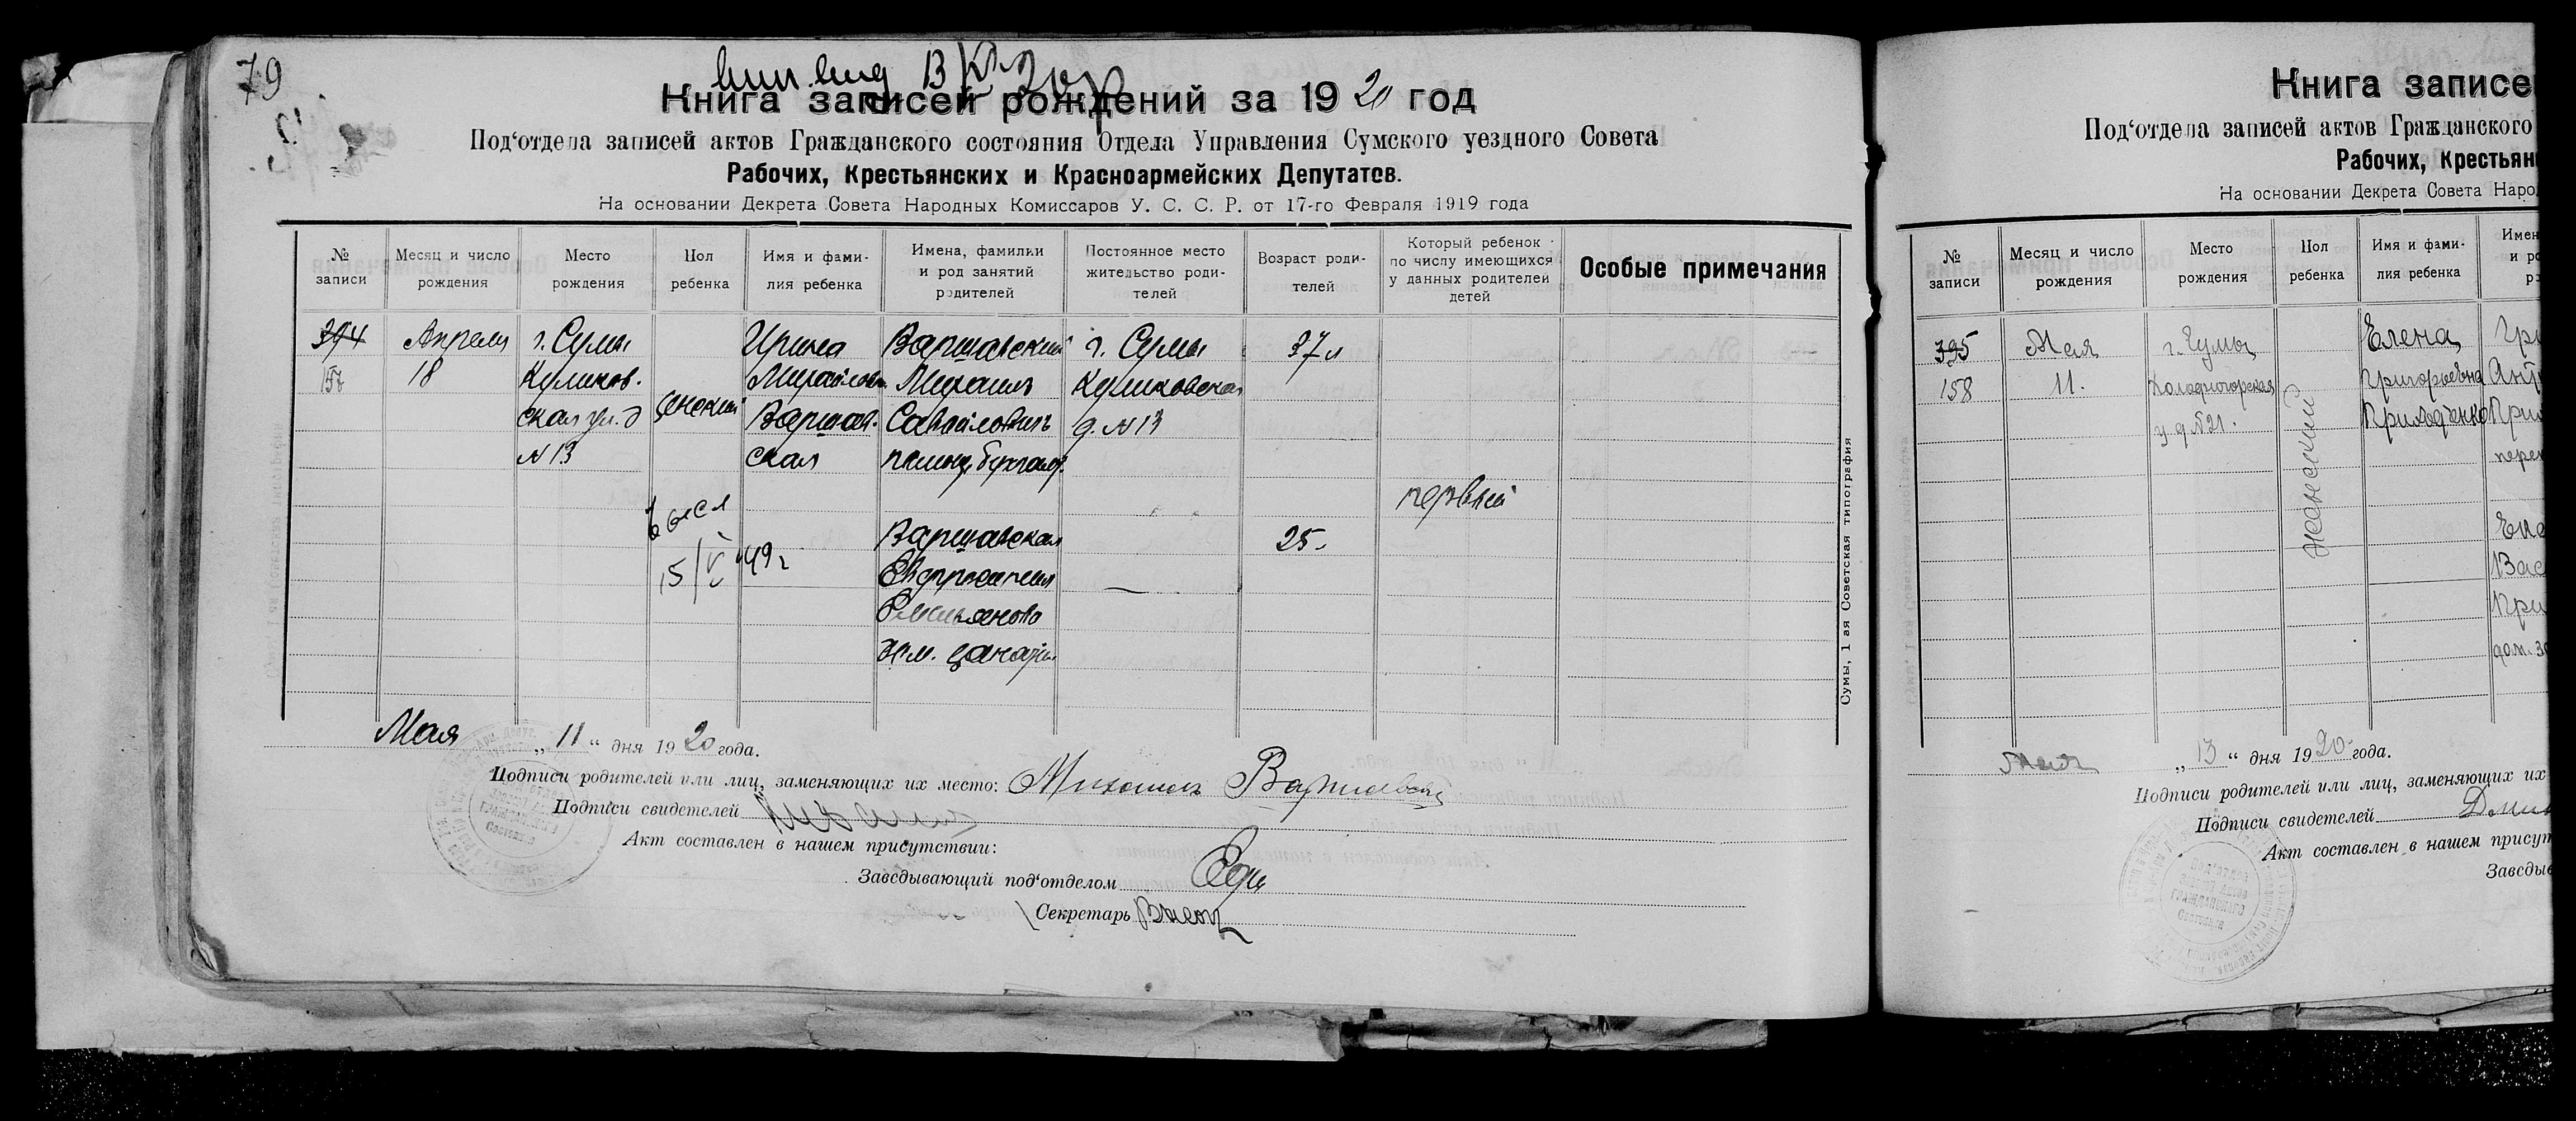 79
Книга записей рождений за 1920 год
Под‘отдела записей актов Гражданского состояния Отдела Управления Сумского уездного Совета
Рабочих, Крестьянских и Красноармейских Депутатов.
На основании Декрета Совета Народных Комиссаров У. С. С. Р. от 17-го Февраля 1919 года
№ записи
Месяц и число рождения
Место рождения
Пол ребенка
Имя и фами-
лия ребенка
Имена, фамилии
и род занятий
родителей
Постоянное место
жительство роди-
телей
Возраст роди-
телей
Который ребенок
по числу имеющихся
у данных родителей
детей
Особые примечания
394
157
Апреля
18
г. Сумы
Куликов.
ская ул. д
№ 13
женский
Ирина
Михайловн.
Варшав.
ская
Варшавский
Михаилъ
помощ. бухгалт.
г. Сумы
Куликовская
д. № 13
37 л
первый
15/V 49 г
Варшавская
Емельянова
25
Мая „11“ дня 1920 года.
Подписи родителей или лиц, заменяющих их место: Михаилъ Варшавский
Подписи свидетелей
Акт составлен в нашем присутствии:
Заведывающий под‘отделом
Секретарь
Сумы, 1 ая Советская типография
Книга записе
Под‘отдела записей актов Гражданского
Рабочих, Крестьян
На основании Декрета Совета Наро
№ записи
Месяц и число
рождения
Место
рождения
Пол
ребенка
Имя и фами-
лия ребенка
Имен
и ро
р
395
158
Мая
11.
г. Сумы
Холодногорская
у. д №21.
женский
Елена
Григорьевна
Приходченко
Гри
Ант
При
Ека
Вас
При
„13“ дня 1920 года.
Подписи родителей или лиц, заменяющих их
Подписи свидетелей
Акт составлен в нашем присут
Заведыв